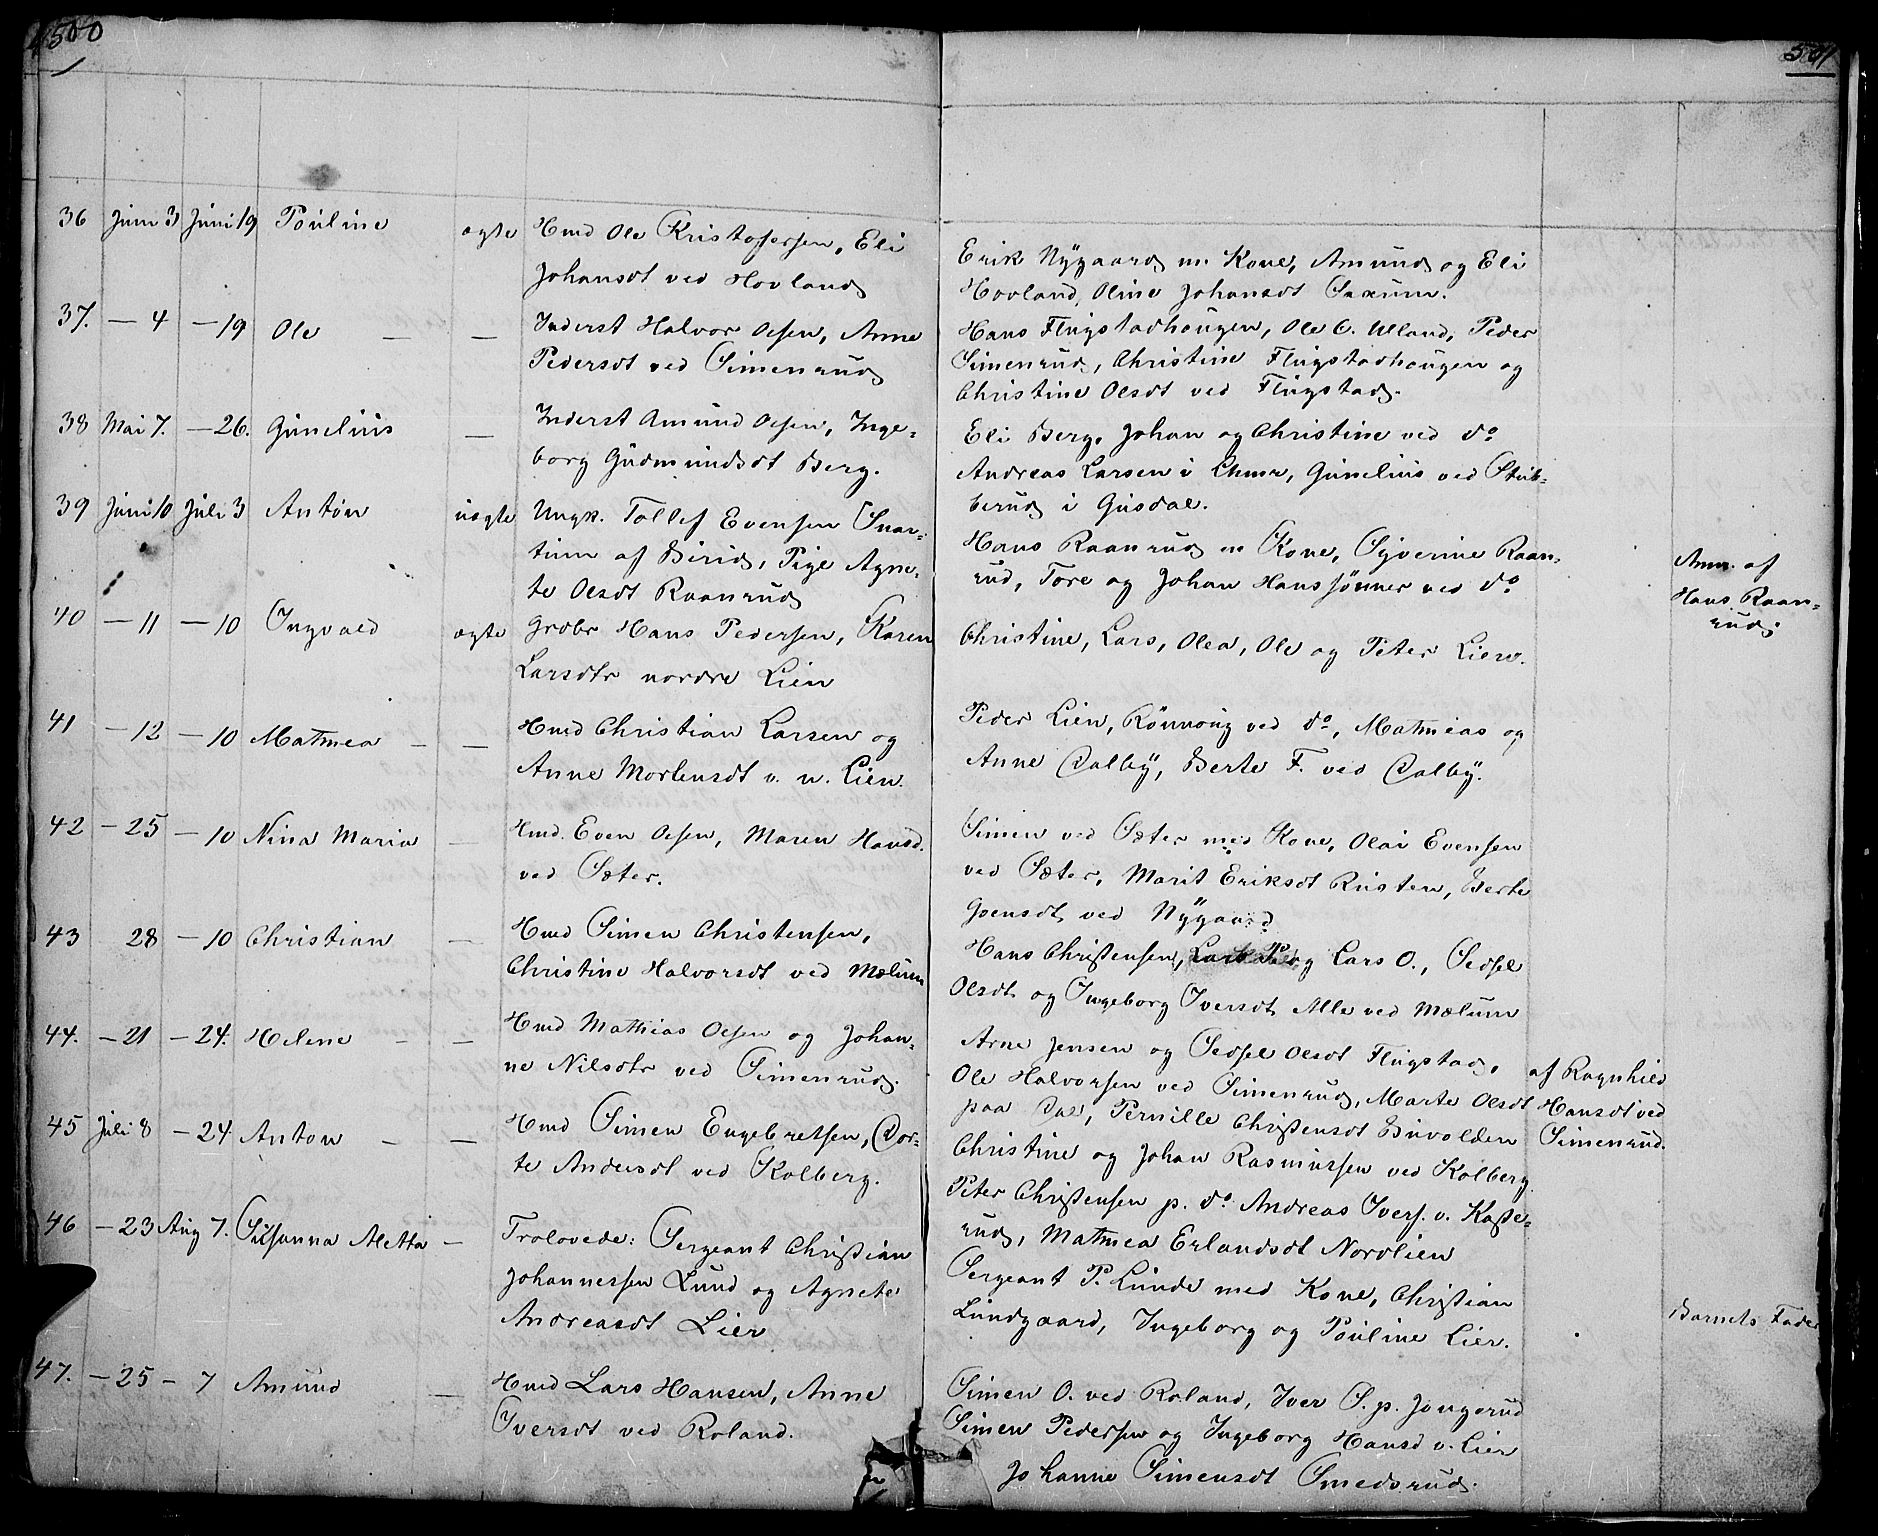 500
501
36 Juni 3 Juni 19 Pouline ægte Hmd Ole Kristofersen, Eli
Johansdt ved Hovland
Erik Nygaard m. Kone, Amund og Eli
Hovland, Oline Johansdt Saxum.
37. — 4 — 19 Ole — — Inderst Halvor Olsen, Anne
Pedersdt ved Simenrud
Hans Flugstadhougen, Ole C. Ulland, Peder
Simenrud, Christine Flugstadhougen og
Christine Olsdt ved Flugstad.
38 Mai 7. — 26. Gunelius — Inderst Amund Olsen, Inge-
borg Gudmundsdt Berg.
Eli Berg, Johan og Christine ved do
Andreas Larsen i Lhmr, Gunelius ved Stub-
berud i Gusdal.
39 Juni 10 Juli 3 Anton uægte Ungk. Tollef Evensen Snar-
tum af Birid, Pige Agne-
te Olsdt Raanrud
Hans Raanrud m Kone, Syverine Raan-
rud, Tore og Johan Hanssønner ved do
Anm. af
Hans Raan-
rud.
40 — 11 — 10 Ingvald ægte Grdbr Hans Pedersen, Karen
Larsdtr nordre Lien
Christine, Lars, Olea, Ole og Peter Lien.
41 — 12 — 10 Mathea — — Hmd Christian Larsen og
Anne Mortensdt v. n. Lien.
Peder Lien, Rønnoug ved do, Mathias og
Anne Dalby, Berte F. ved Dalby.
42 — 25 — 10 Nina Maria — Hmd. Even Olsen, Maren Hansd.
ved Sæter.
Simen ved Sæter med Kone, Olai Evensen
ved Sæter, Marit Eriksdt Rusten, Berte
Goensdt ved Nygaard
43 28 — 10 Christian — Hmd Simen Christensen,
Christine Halvorsdt ved Mælum
Hans Christensen, og Lars O., Sedsel
Olsdt og Ingeborg Iversdt Alle ved Mælum
44. — 21 — 24. Helene — — Hmd Mathias Olsen og Johan-
ne Nilsdtr ved Simenrud.
Arne Jensen og Sedsel Olsdt Flugstad,
Ole Halvorsen ved Simenrud, Marte Olsdt
paa Dal, Pernille Christensdt Buvolden
af Ragnhild
Hansdt ved
Simenrud.
45 Juli 8 — 24 Anton — — Hmd Simen Engebretsen, Dor-
te Andersdt ved Kolberg.
Christine og Johan Rasmussen ved Kolberg
Peter Christensen p. do. Andreas Ivers. v. Kaste-
rud, Mathea Erlandsdt Nordlien
46 — 23 Aug 7. Susanna Aletta — Trolovede: Sergeant Christian
Johannessen Lund og Agnete
Andreasdt Lier
Sergeant P. Lunde med Kone, Christian
Lundgaard, Ingeborg og Pouline Lier.
Barnets Fader
47. — 25 — 7 Amund — Hmd Lars Hansen, Anne
Iversdt ved Roland.
Simen O. ved Roland, Iver S. p. Jongerud
Simen Pedersen og Ingeborg Hansd v. Lier
Johanne Simensdt Smedsrud.